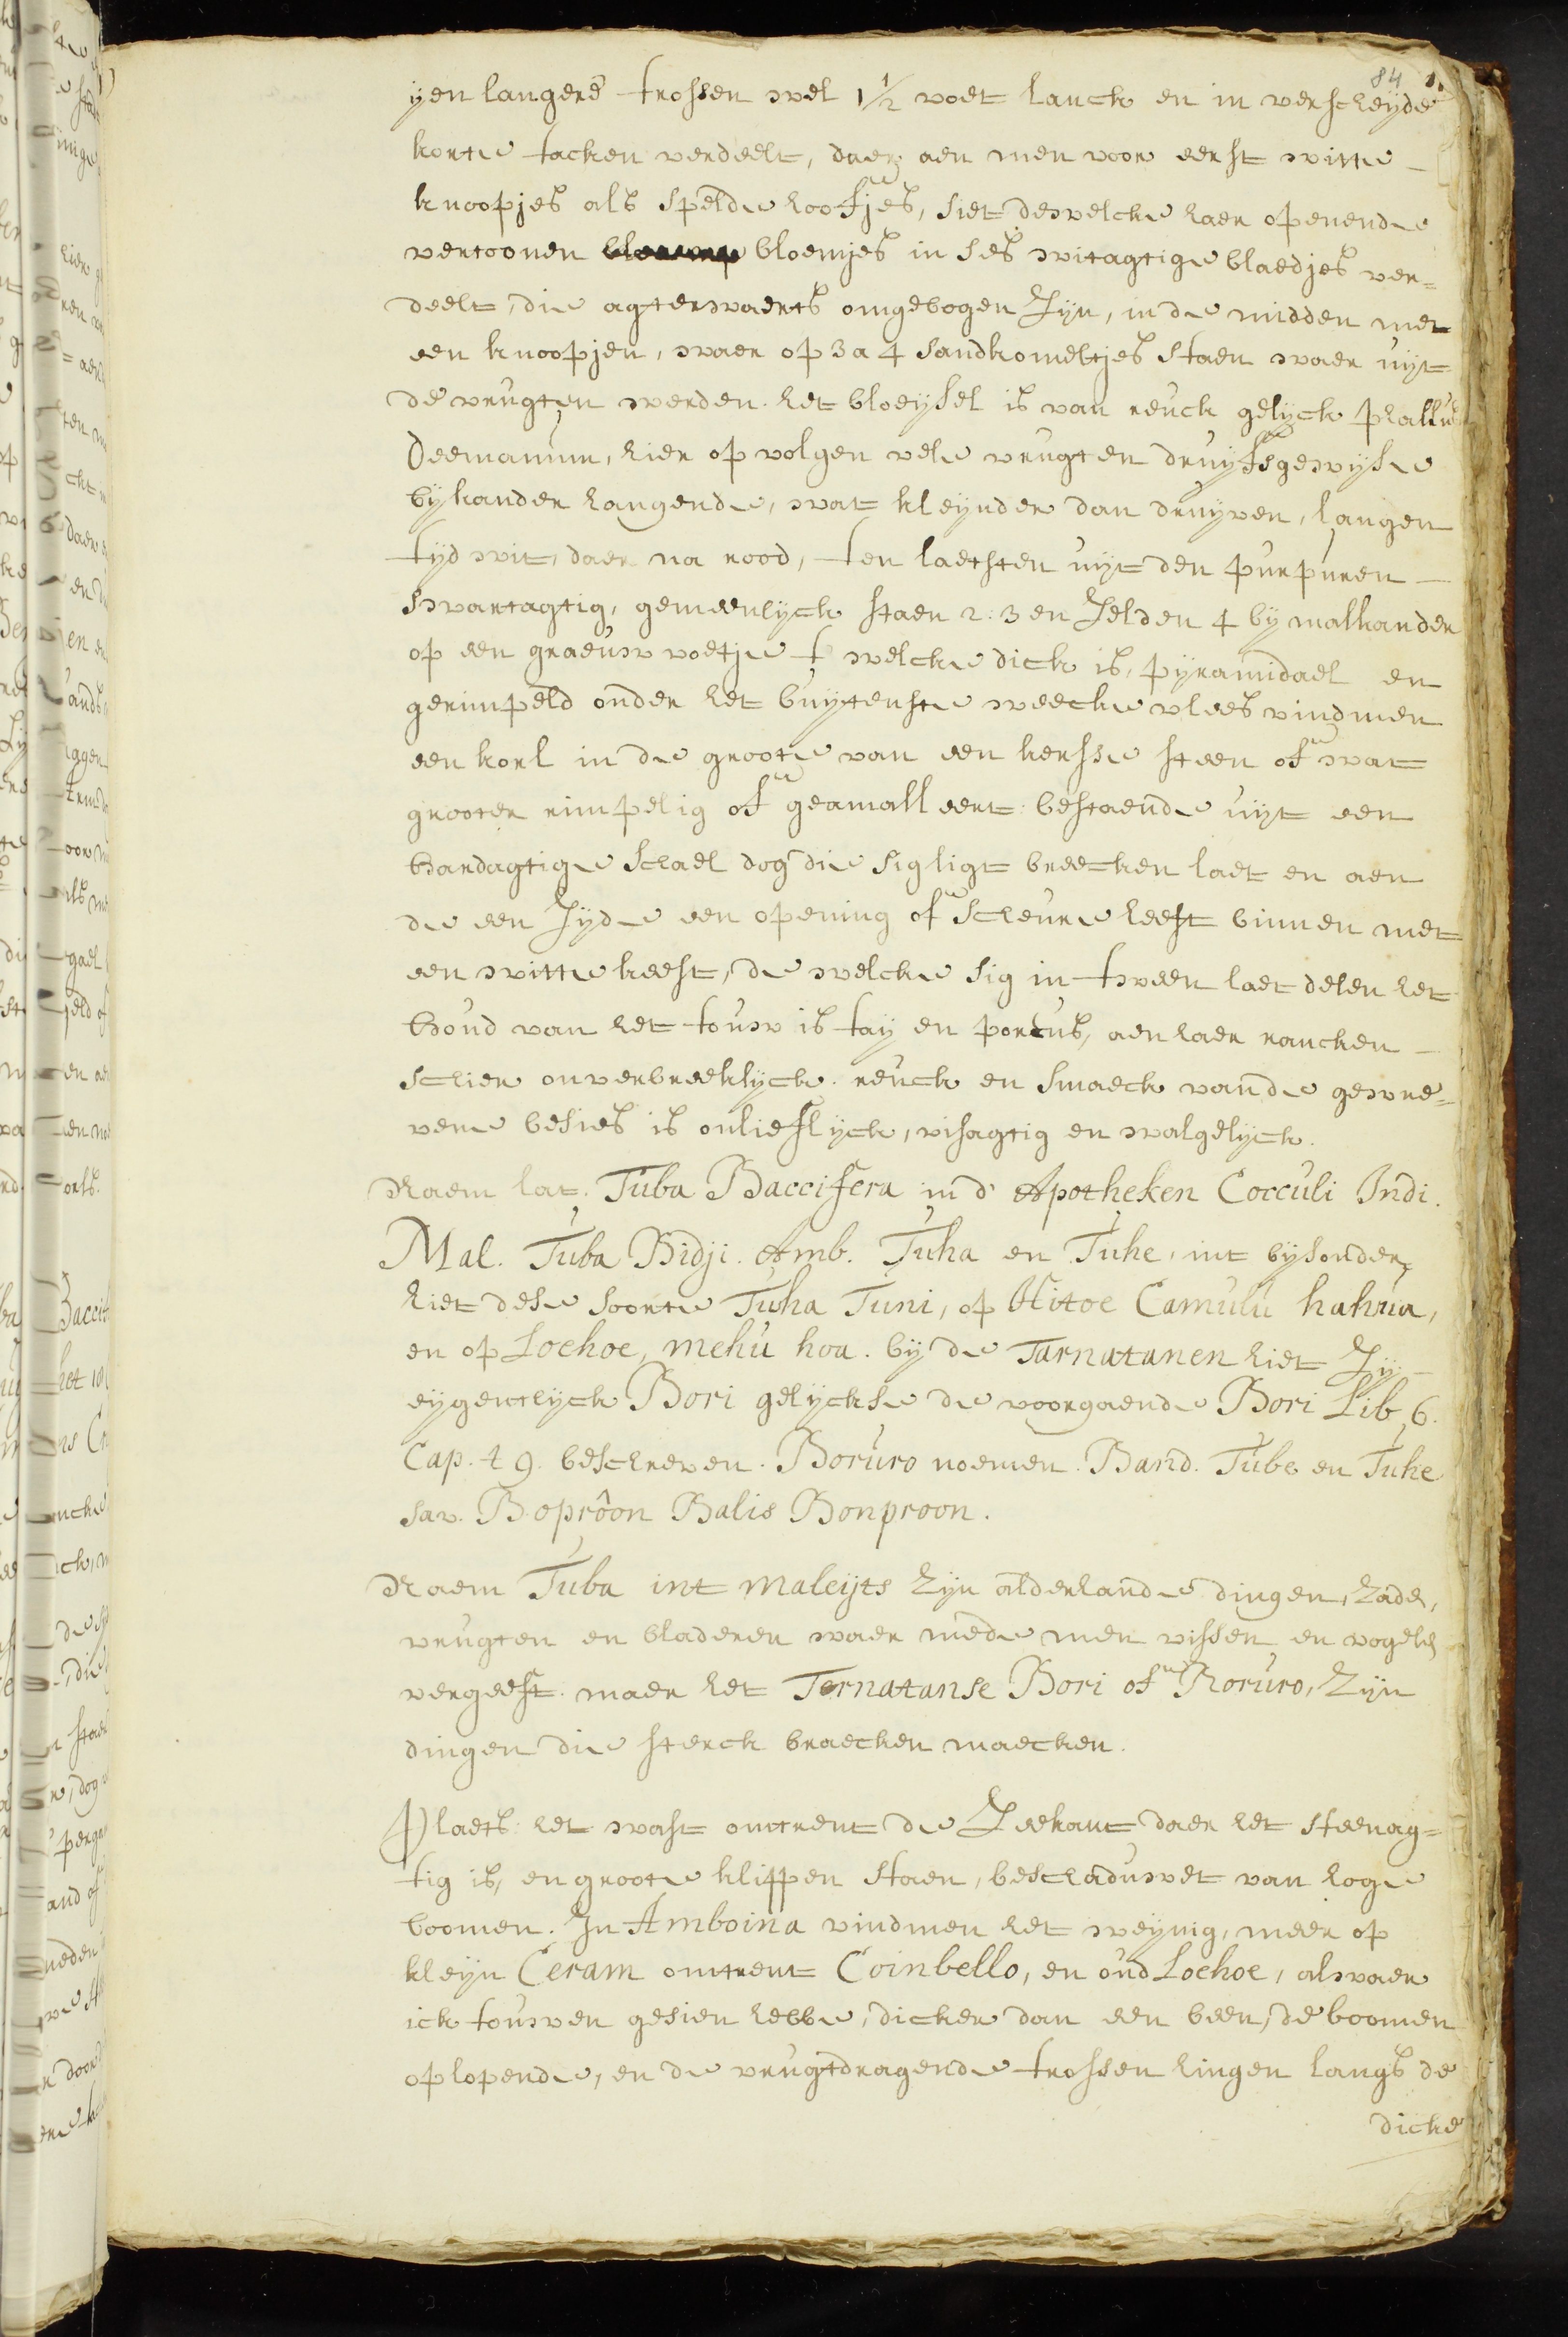 84
yen langere trossen wel 1 1/2 voet lanck en in verscheyde
korte tacken verdeelt, daer aen men voor eerst witte
knoopjes als spelde hoofjes, siet dewelcke haer openende
vertoonen bloemjes in ses witagtige blaedjes ver=
deelt, die agterwaerts omgebogen zyn, in de midden met
een knoopjen, waer op 3 a 4 sandkorneltjes staen waer uyt
de vrugten werden. het bloeysel is van reuck gelyck phallus
Deemanum, hier op volgen vele vrugten druyfsgewyse
bykander hangende, wat kleynder dan druyven, langen
tyd wit, daer na rood, ten laetsten uyt den purpuren
swartagtig, gemeenlyck staen 2: 3 en zelden 4 by malkander
op een graeuw voetje t welcke dick is, pyramidael en
gerimpeld onder het buytenste weecke vlees vindmen
een korl in de groote van een kersse steen of wat
grooter rimpelig of geamalleert bestaende uyt een
hardagtige schael dog die sig ligt breecken laet en aen
de een zyde een opening of scheure heeft binnen met
een witte keest, de welcke sig in tween laet delen het
houd van het touw is tay en poreus, aen haer rancken
schier onverbreeklyck. reuck en smaeck van de gewre=
vene besies is onlieflyck, visagtig en walgelyck.
Naem lat. Tuba Baccifera in d' Apotheken Cocculi Indi.
Mal. Tuba Bidji. Amb. Tuha en Tuhe, int bysonder
hiet dese soorte Tuha Tuni, op Hitoe Camulu hahua,
en op Loehoe, mehu hoa. by de Tarnatanen hiet zy
eygentlyck Bori gelyckse de voorgaende Bori Lib 6.
Cap. 49. beschreven. Boruro noemen. Band. Tube en Tuhe
Jav. Boprôon Balis Bonproon.
Naem Tuba int maleyts zyn alderhande dingen, zade,
vrugten en bladeren waer mede men vissen en vogels
vergeeft. maer het Ternatanse Bori of Roruro, zyn
dingen die sterck braecken maecken.
Plaets het wast omtrent de Zeekant daer het steenag=
tig is, en groote klippen staen, beschaduwet van hoge
boomen. In Amboina vindmen het weynig, meer op
kleyn Ceram omtrent Coinbello, en oud Loehoe, alwaer
ick touwen gesien hebbe, dicker dan een been, de boomen
oplopende, en de vrugtdragende trossen hingen langs de
dicke